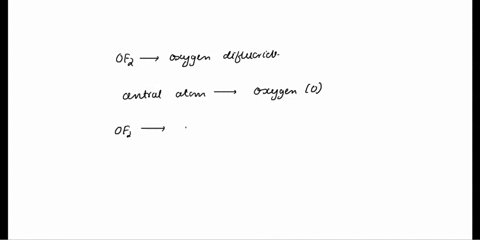 OF₂ → oxygen difluoride.
central atom → oxygen (O)
OF₂ →